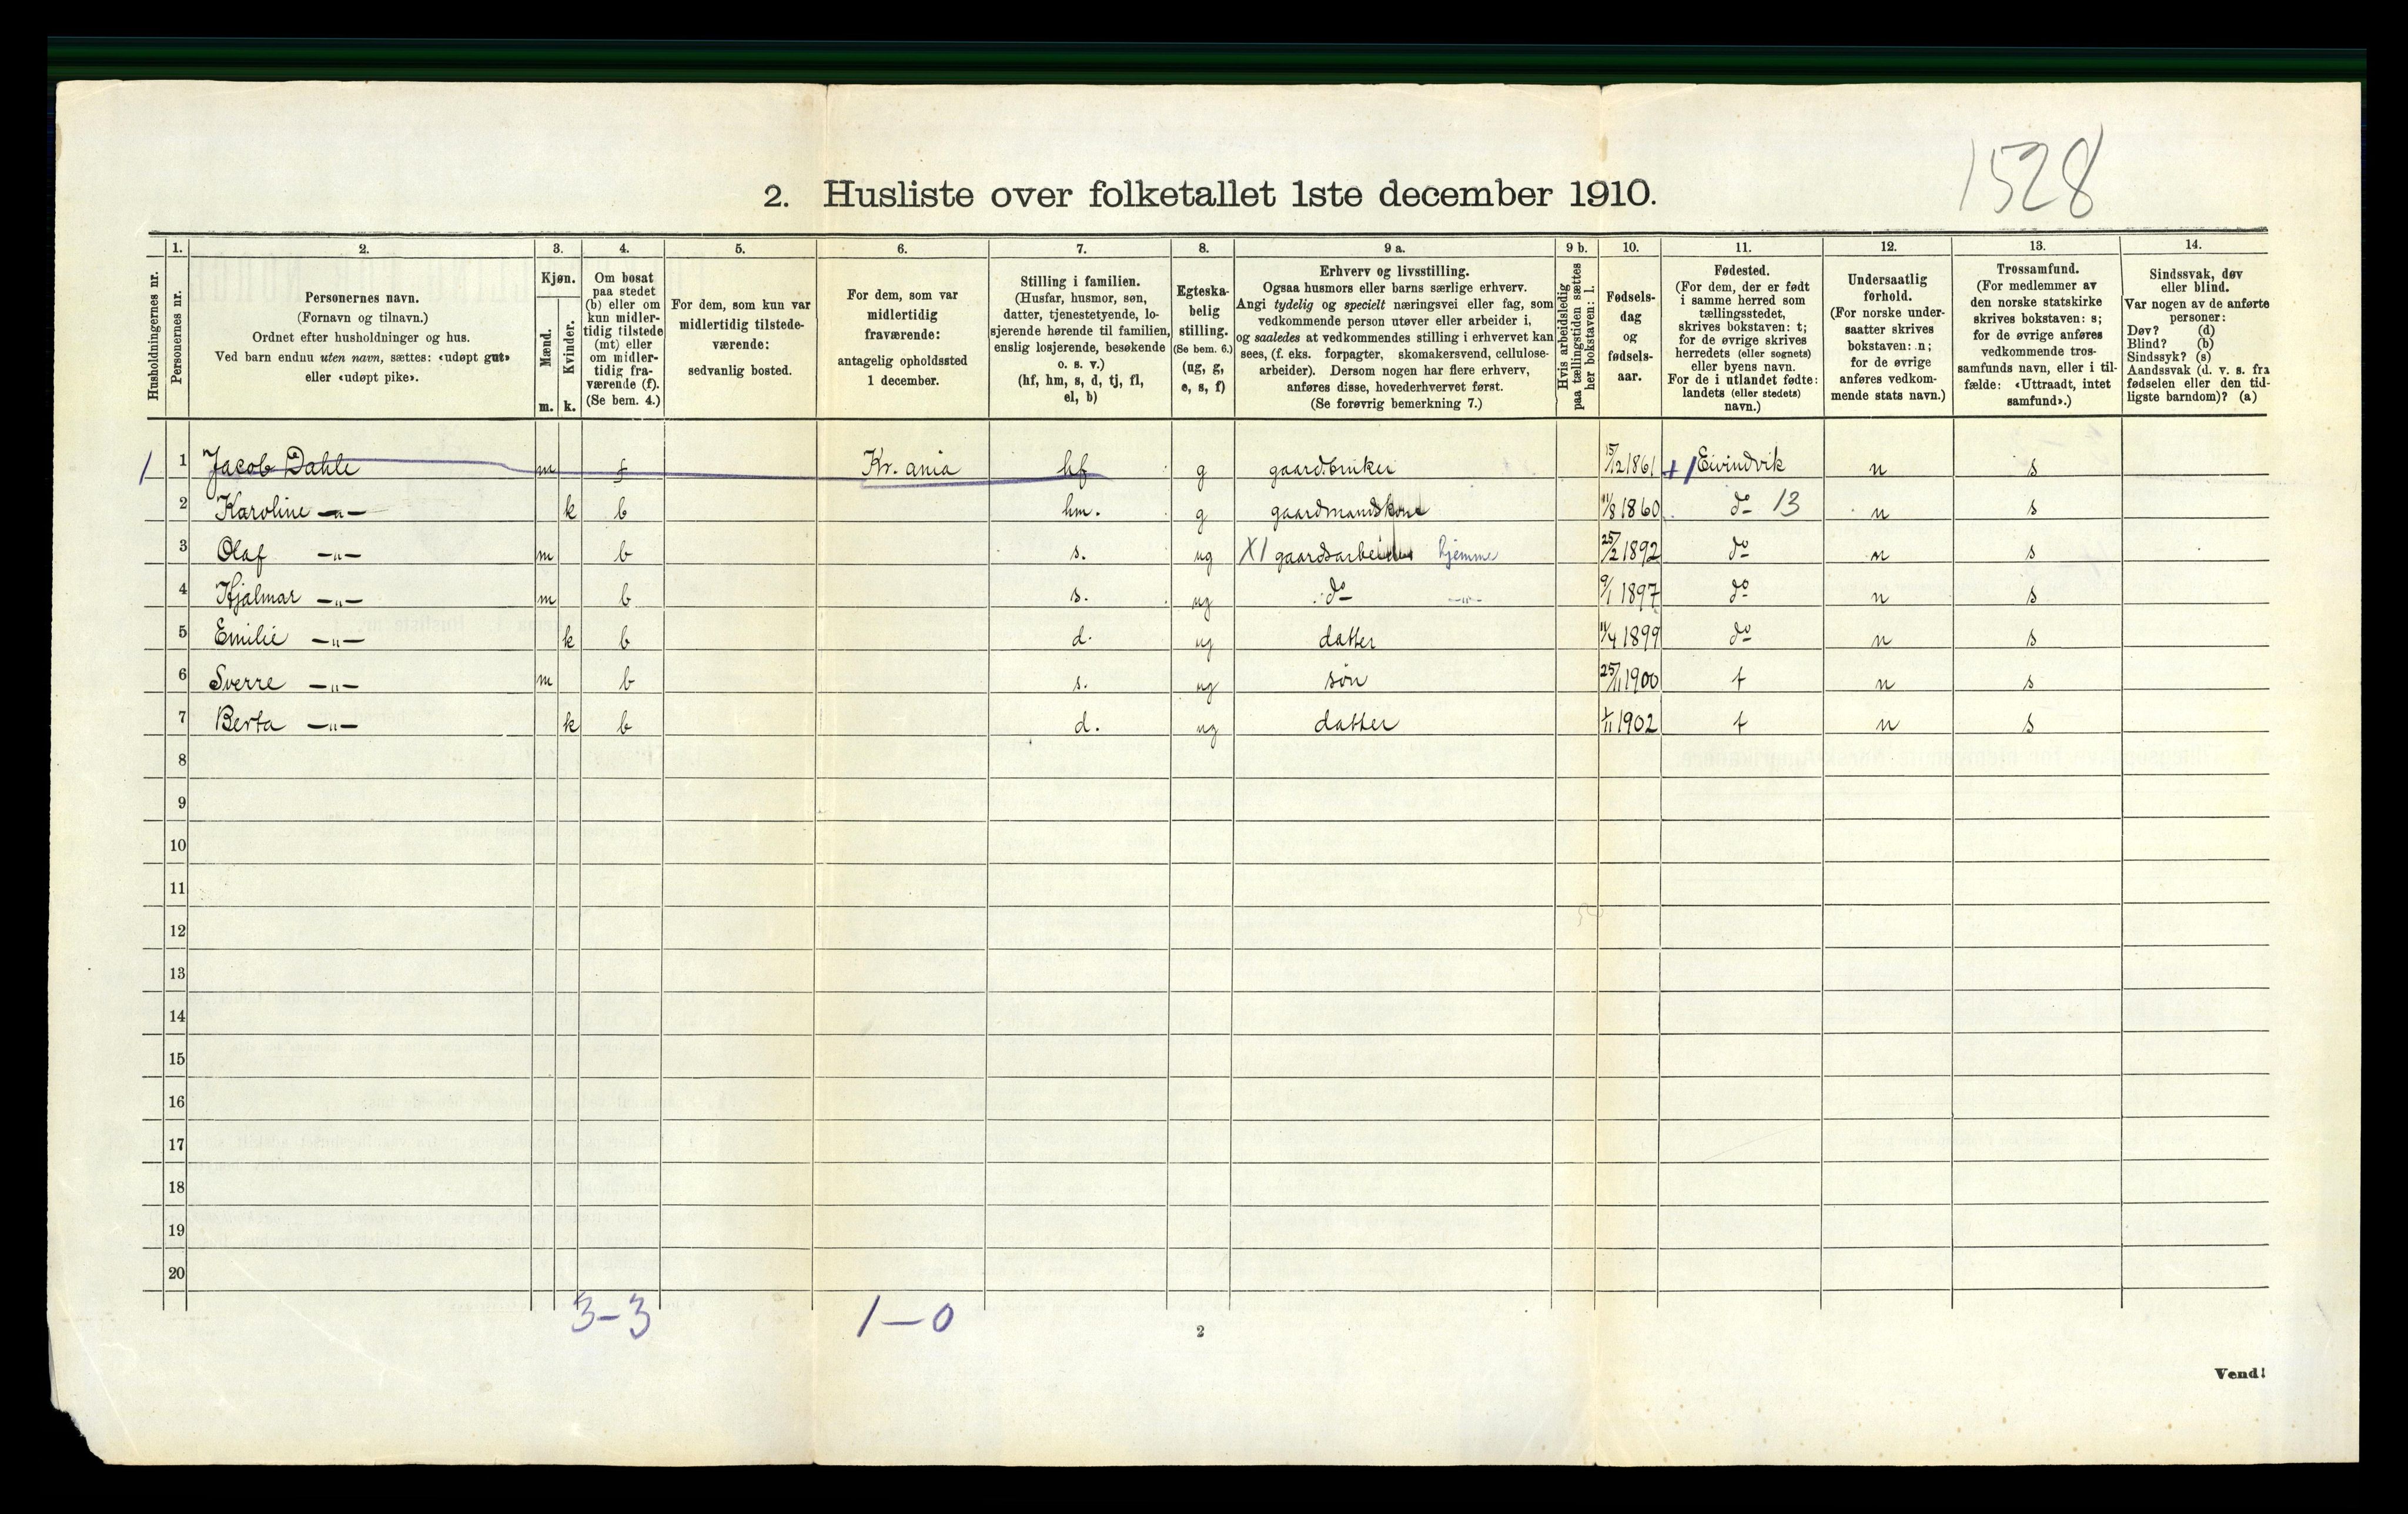 1528
2. Husliste over folketallet 1ste december 1910.
1. 2. 3. 4. 5. 6. 7. 8. 9 a. 9 b. 10. 11. 12. 13. 14.
Husholdningernes nr.
Personernes nr.
Personernes navn.
(Fornavn og tilnavn.)
Ordnet efter husholdninger og hus.
Ved barn endnu uten navn, sættes: «udøpt gut»
eller «udøpt pike».
Kjøn.
Mænd.
m.
Kvinder.
k.
Om bosat
paa stedet
(b) eller om
kun midler-
tidig tilstede
(mt) eller
om midler-
tidig fra-
værende (f).
(Se bem. 4.)
For dem, som kun var
midlertidig tilstede-
værende:
sedvanlig bosted.
For dem, som var
midlertidig
fraværende:
antagelig opholdssted
1 december.
Stilling i familien.
(Husfar, husmor, søn,
datter, tjenestetyende, lo-
sjerende hørende til familien,
enslig losjerende, besøkende
o. s. v.)
(hf, hm, s, d, tj, fl,
el, b)
Egteska-
belig
stilling.
(Se bem. 6.)
(ug, g,
e, s, f)
Erhverv og livsstilling.
Ogsaa husmors eller barns særlige erhverv.
Angi tydelig og specielt næringsvei eller fag, som
vedkommende person utøver eller arbeider i,
og saaledes at vedkommendes stilling i erhvervet kan
sees, (f. eks. forpagter, skomakersvend, cellulose-
arbeider). Dersom nogen har flere erhverv,
anføres disse, hovederhvervet først.
(Se forøvrig bemerkning 7.)
Hvis arbeidsledig
paa tællingstiden sættes
her bokstaven: l.
Fødsels-
dag
og
fødsels-
aar.
Fødested.
(For dem, der er født
i samme herred som
tællingsstedet,
skrives bokstaven: t;
for de øvrige skrives
herredets (eller sognets)
eller byens navn.
For de i utlandet fødte:
landets (eller stedets)
navn.)
Undersaatlig
forhold.
(For norske under-
saatter skrives
bokstaven: n;
for de øvrige
anføres vedkom-
mende stats navn.)
Trossamfund.
(For medlemmer av
den norske statskirke
skrives bokstaven: s;
for de øvrige anføres
vedkommende tros-
samfunds navn, eller i til-
fælde: «Uttraadt, intet
samfund».)
Sindssvak, døv
eller blind.
Var nogen av de anførte
personer:
Døv? (d)
Blind? (b)
Sindssyk? (s)
Aandssvak (d. v. s. fra
fødselen eller den tid-
ligste barndom)? (a)
1 1 Jacob Dahle m f Kr.ania hf g gaardbruker 15/12 1861 +1 Eivindvik n s
2 Karoline —"— k b hm. g gaardmandskone 11/8 1860 do 13 n s
3 Olaf —"— m b s. ug X1 gaardsarbeider hjemme 25/2 1892 do n s
4 Hjalmar —"— m b s. ug do —"— 9/1 1897 do n s
5 Emilie —"— k b d. ug datter 11/4 1899 do n s
6 Sverre —"— m b s. ug søn 25/11 1900 t n s
7 Berta —"— k b d. ug datter 1/11 1902 t n s
8
9
10
11
12
13
14
15
16
17
18
19
20
3-3 1-0
2
Vend!